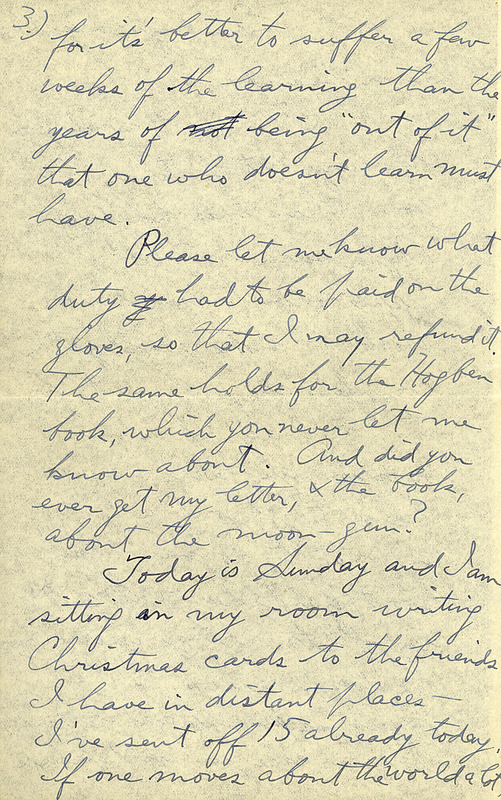 3.)
for it's better to suffer a few
weeks of the learning than the
years of not being "out of it"
that one who doesn't learn must
have.
Please let me know what
duty had to be paid on the
gloves, so that I may refund it.
The same holds for the Hogben
book, which you never let me
know about. And did you
ever get my letter, & the book,
about the moon-gun?
Today is Sunday and I am
sitting in my room writing
Christmas cards to the friends
I have in distant places—
I've sent off 15 already today.
If one moves about the world a lot